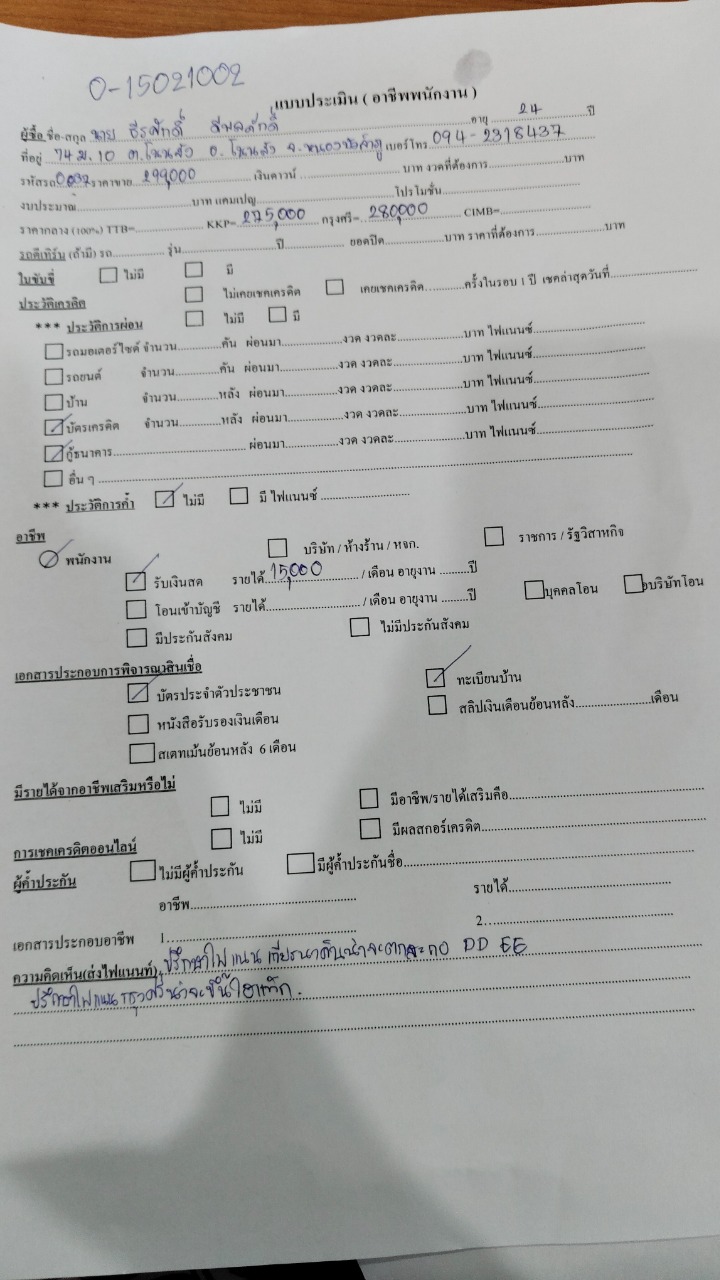 0-15021002
แบบประเมิน ( อาชีพพนักงาน )
ผู้ซื้อ ชื่อ-สกุล นาย ธีรศักดิ์ อายุ 24 ปี
ที่อยู่ 74 ม.10 ต.โนนสัง อ.โนนสัง จ.หนองบัวลำภู เบอร์โทร 094-2318437
รหัสรถ ราคาขาย 299,000 เงินดาวน์ บาท งวดที่ต้องการ บาท
งบประมาณ บาท แคมเปญ โปรโมชั่น
ราคากลาง (100%) TTB= KKP= 275,000 กรุงศรี= 280,000 CIMB=
รถตีเทิร์น (ถ้ามี) รถ รุ่น ปี ยอดปิด บาท ราคาที่ต้องการ บาท
ใบขับขี่ ไม่มี มี
ประวัติเครดิต ไม่เคยเชคเครดิต เคยเชคเครดิต ครั้งในรอบ 1 ปี เชคล่าสุดวันที่
*** ประวัติการผ่อน ไม่มี มี
รถมอเตอร์ไซค์ จำนวน คัน ผ่อนมา งวด งวดละ บาท ไฟแนนซ์
รถยนต์ จำนวน คัน ผ่อนมา งวด งวดละ บาท ไฟแนนซ์
บ้าน จำนวน หลัง ผ่อนมา งวด งวดละ บาท ไฟแนนซ์
บัตรเครดิต จำนวน หลัง ผ่อนมา งวด งวดละ บาท ไฟแนนซ์
กู้ธนาคาร ผ่อนมา งวด งวดละ บาท ไฟแนนซ์
อื่น ๆ
*** ประวัติการค้ำ ไม่มี มี ไฟแนนซ์
อาชีพ
พนักงาน บริษัท / ห้างร้าน / หจก. ราชการ / รัฐวิสาหกิจ
รับเงินสด รายได้ 15,000 / เดือน อายุงาน ปี
โอนเข้าบัญชี รายได้ / เดือน อายุงาน ปี บุคคลโอน บริษัทโอน
มีประกันสังคม ไม่มีประกันสังคม
เอกสารประกอบการพิจารณาสินเชื่อ
บัตรประจำตัวประชาชน ทะเบียนบ้าน
หนังสือรับรองเงินเดือน สลิปเงินเดือนย้อนหลัง เดือน
สเตทเม้นย้อนหลัง 6 เดือน
มีรายได้จากอาชีพเสริมหรือไม่
ไม่มี มีอาชีพ/รายได้เสริมคือ
การเชคเครดิตออนไลน์ ไม่มี มีผลสกอร์เครดิต
ผู้ค้ำประกัน ไม่มีผู้ค้ำประกัน มีผู้ค้ำประกันชื่อ
อาชีพ รายได้
เอกสารประกอบอาชีพ 1. 2.
ความคิดเห็น(ส่งไฟแนนท์) ปรึกษาไฟแนน เกียรนาคินน่าจะตก DD EE
ปรึกษาไฟแนน